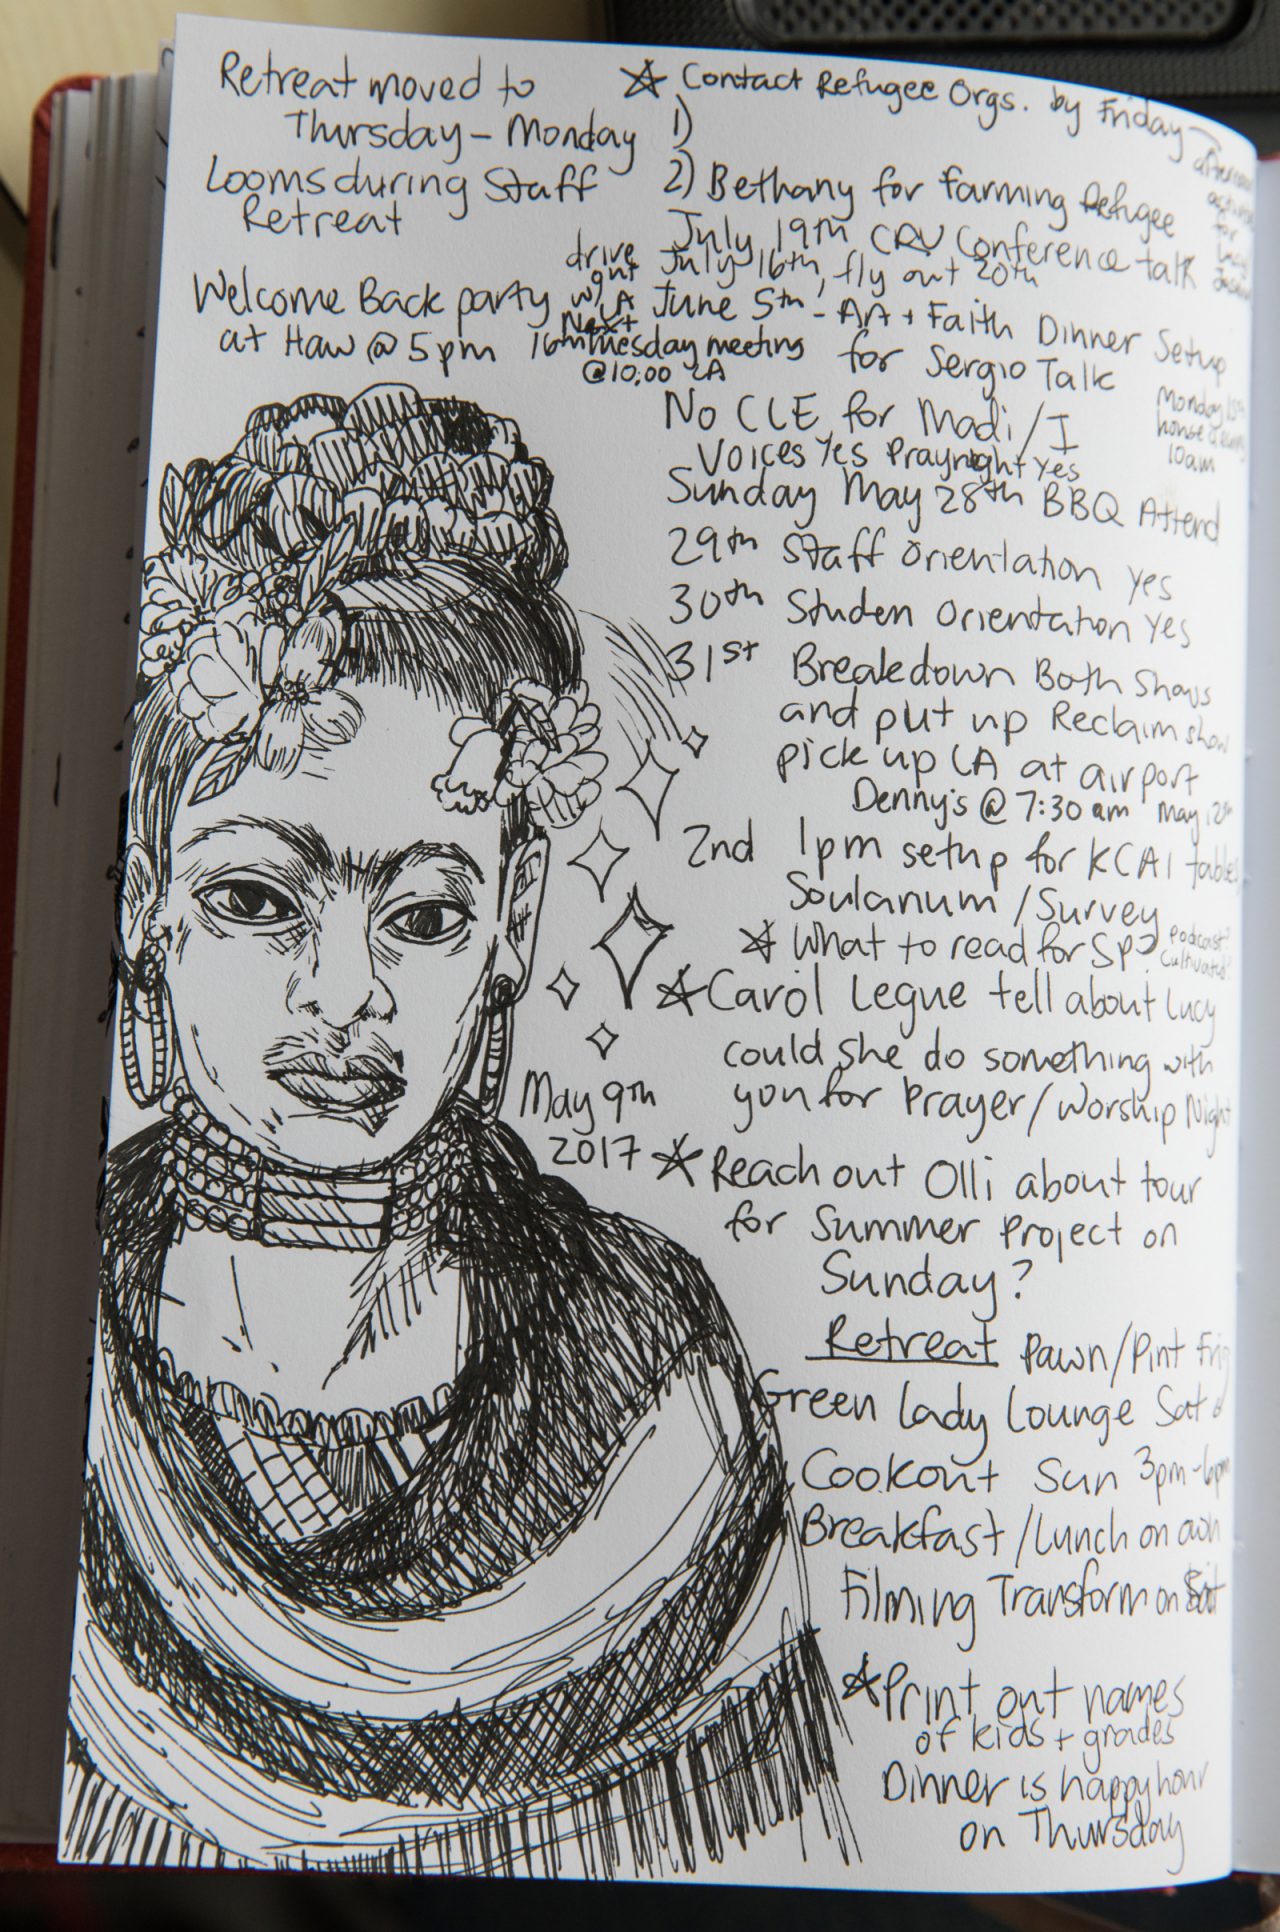 Retreat moved to
Thursday - Monday
Looms during Staff
Retreat
Welcome Back party
at Haw @ 5pm
drive
out
w/ LA
Next
16th Tuesday meeting
@10:00 LA
☆ Contact Refugee Orgs. by Friday
1)
2) Bethany for farming Refugee
July 19th CRU Conference talk
July 16th, fly out 20th
June 5th - AA + Faith Dinner Setup
for Sergio Talk
afternoon
for
Lucy
No CLE for Madi/I
Voices Yes Praynight Yes
Monday 15th
house
10am
Sunday May 28th BBQ Attend
29th Staff Orientation Yes
30th Studen Orientation Yes
31st Breakdown Both Shows
and put up Reclaim show
pick up LA at airport
Denny's @ 7:30am May 12th
2nd 1pm setup for KCAI tables
Soulanum/Survey
☆ What to read for SP?
Podcast?
Cultivated?
☆ Carol Legue tell about Lucy
could she do something with
you for Prayer/Worship Night
May 9th
2017
☆ Reach out Olli about tour
for Summer Project on
Sunday?
Retreat Pawn/Pint Fri
Green Lady Lounge Sat
Cookout Sun 3pm-6pm
Breakfast/Lunch on own
Filming Transform on Sat
☆ Print out names
of kids + grades
Dinner is happy hour
on Thursday